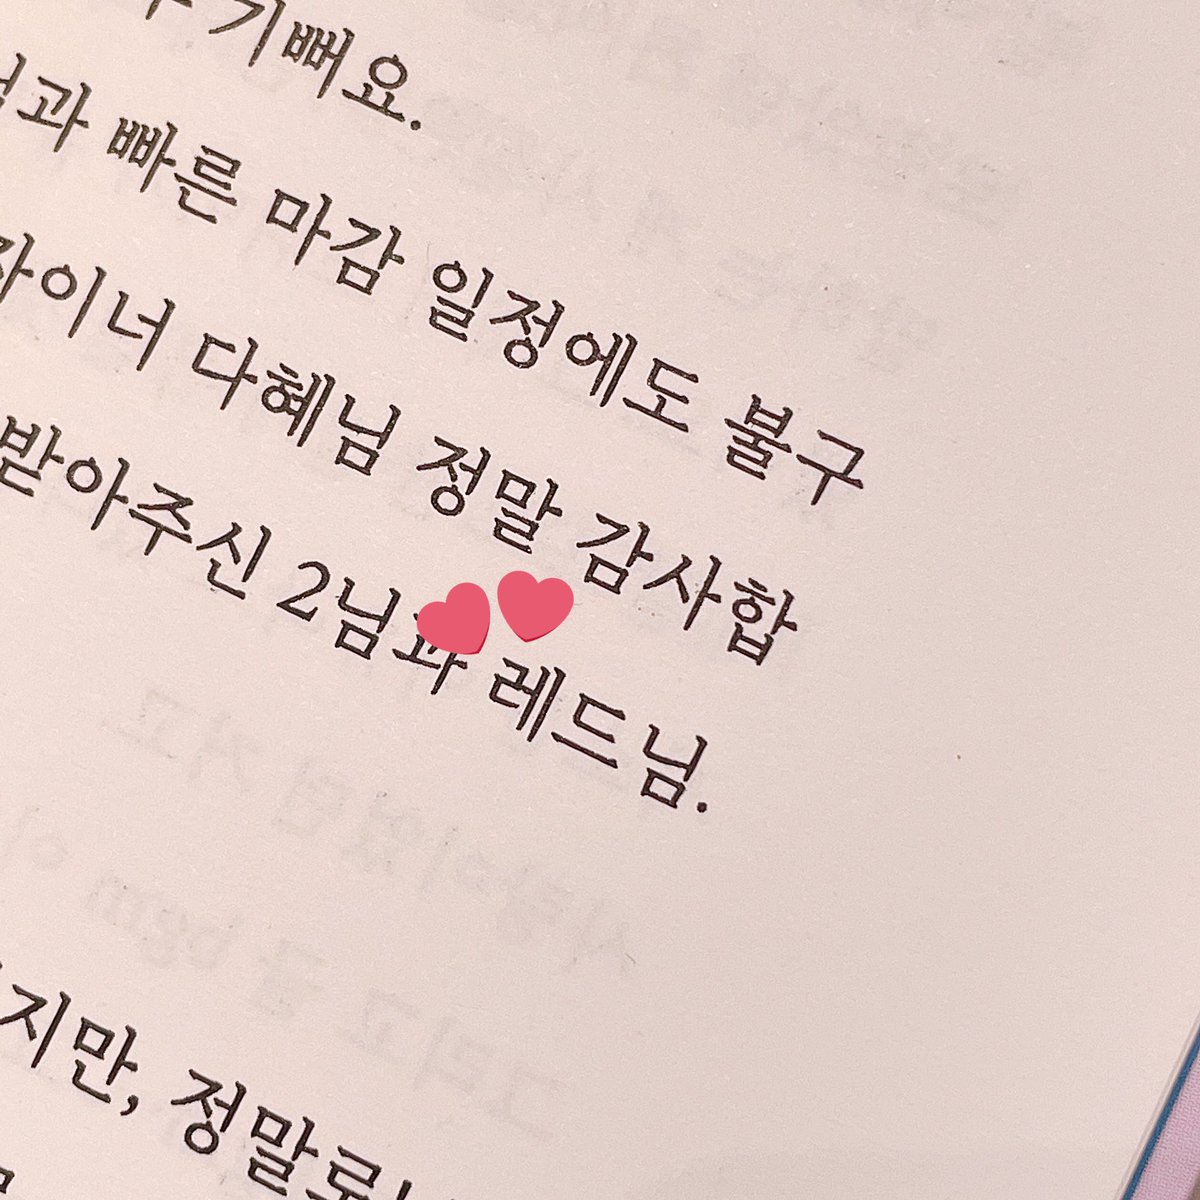 기뻐요.
빠른 마감 일정에도 불구
다혜님 정말 감사합
받아주신 2님과 레드님.
지만, 정말로